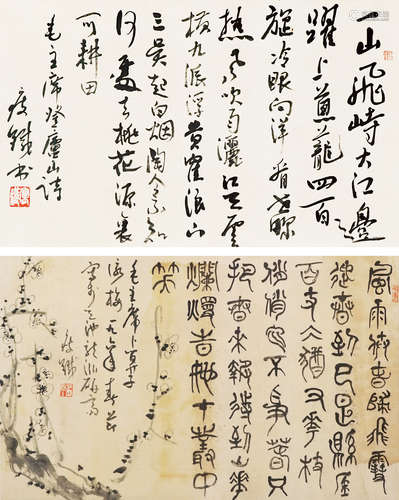 一山飛峙大江邊
躍上蔥蘢四百
旋冷眼向洋看世界
熱風吹雨灑江天雲
橫九派浮黄鶴浪下
三吳起白煙陶令不知
何處去桃花源裏
可耕田
毛主席登廬山詩
瘦鐵書
風雨送春歸飛雪
迎春到已是懸崖
百丈冰猶有花枝
俏俏也不爭春只
把春來報待到山花
爛漫時她在叢中
笑
毛主席卜算子
詠梅一九六年春節
瘦鐵